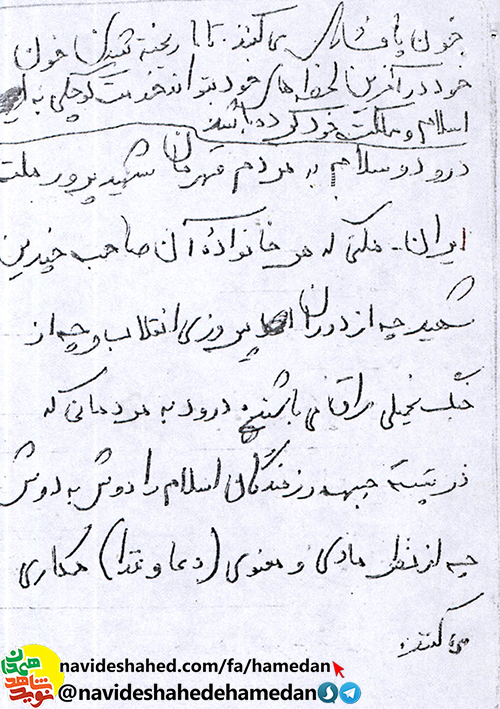 خون پافشاری می کنند. تا با ریخته شدن خون
خود در آخرین لحظه های خود بتوانند خدمت کوچکی به
اسلام و مملکت خود کرده باشند
درود و سلام به مردم قهرمان شهید پرور ملت
ایران. ملتی که هر خانواده آن صاحب چندین
شهید چه از دوران پیروزی انقلاب و چه از
جنگ تحمیلی عراق می باشند درود به مردمانی که
در پشت جبهه رزمندگان اسلام را دوش به دوش
چه از نظر مادی و معنوی (دعا و غذا) همکاری
می کنند.
navideshahed.com/fa/hamedan
@navideshahedehamedan
نوید شاهد همدان